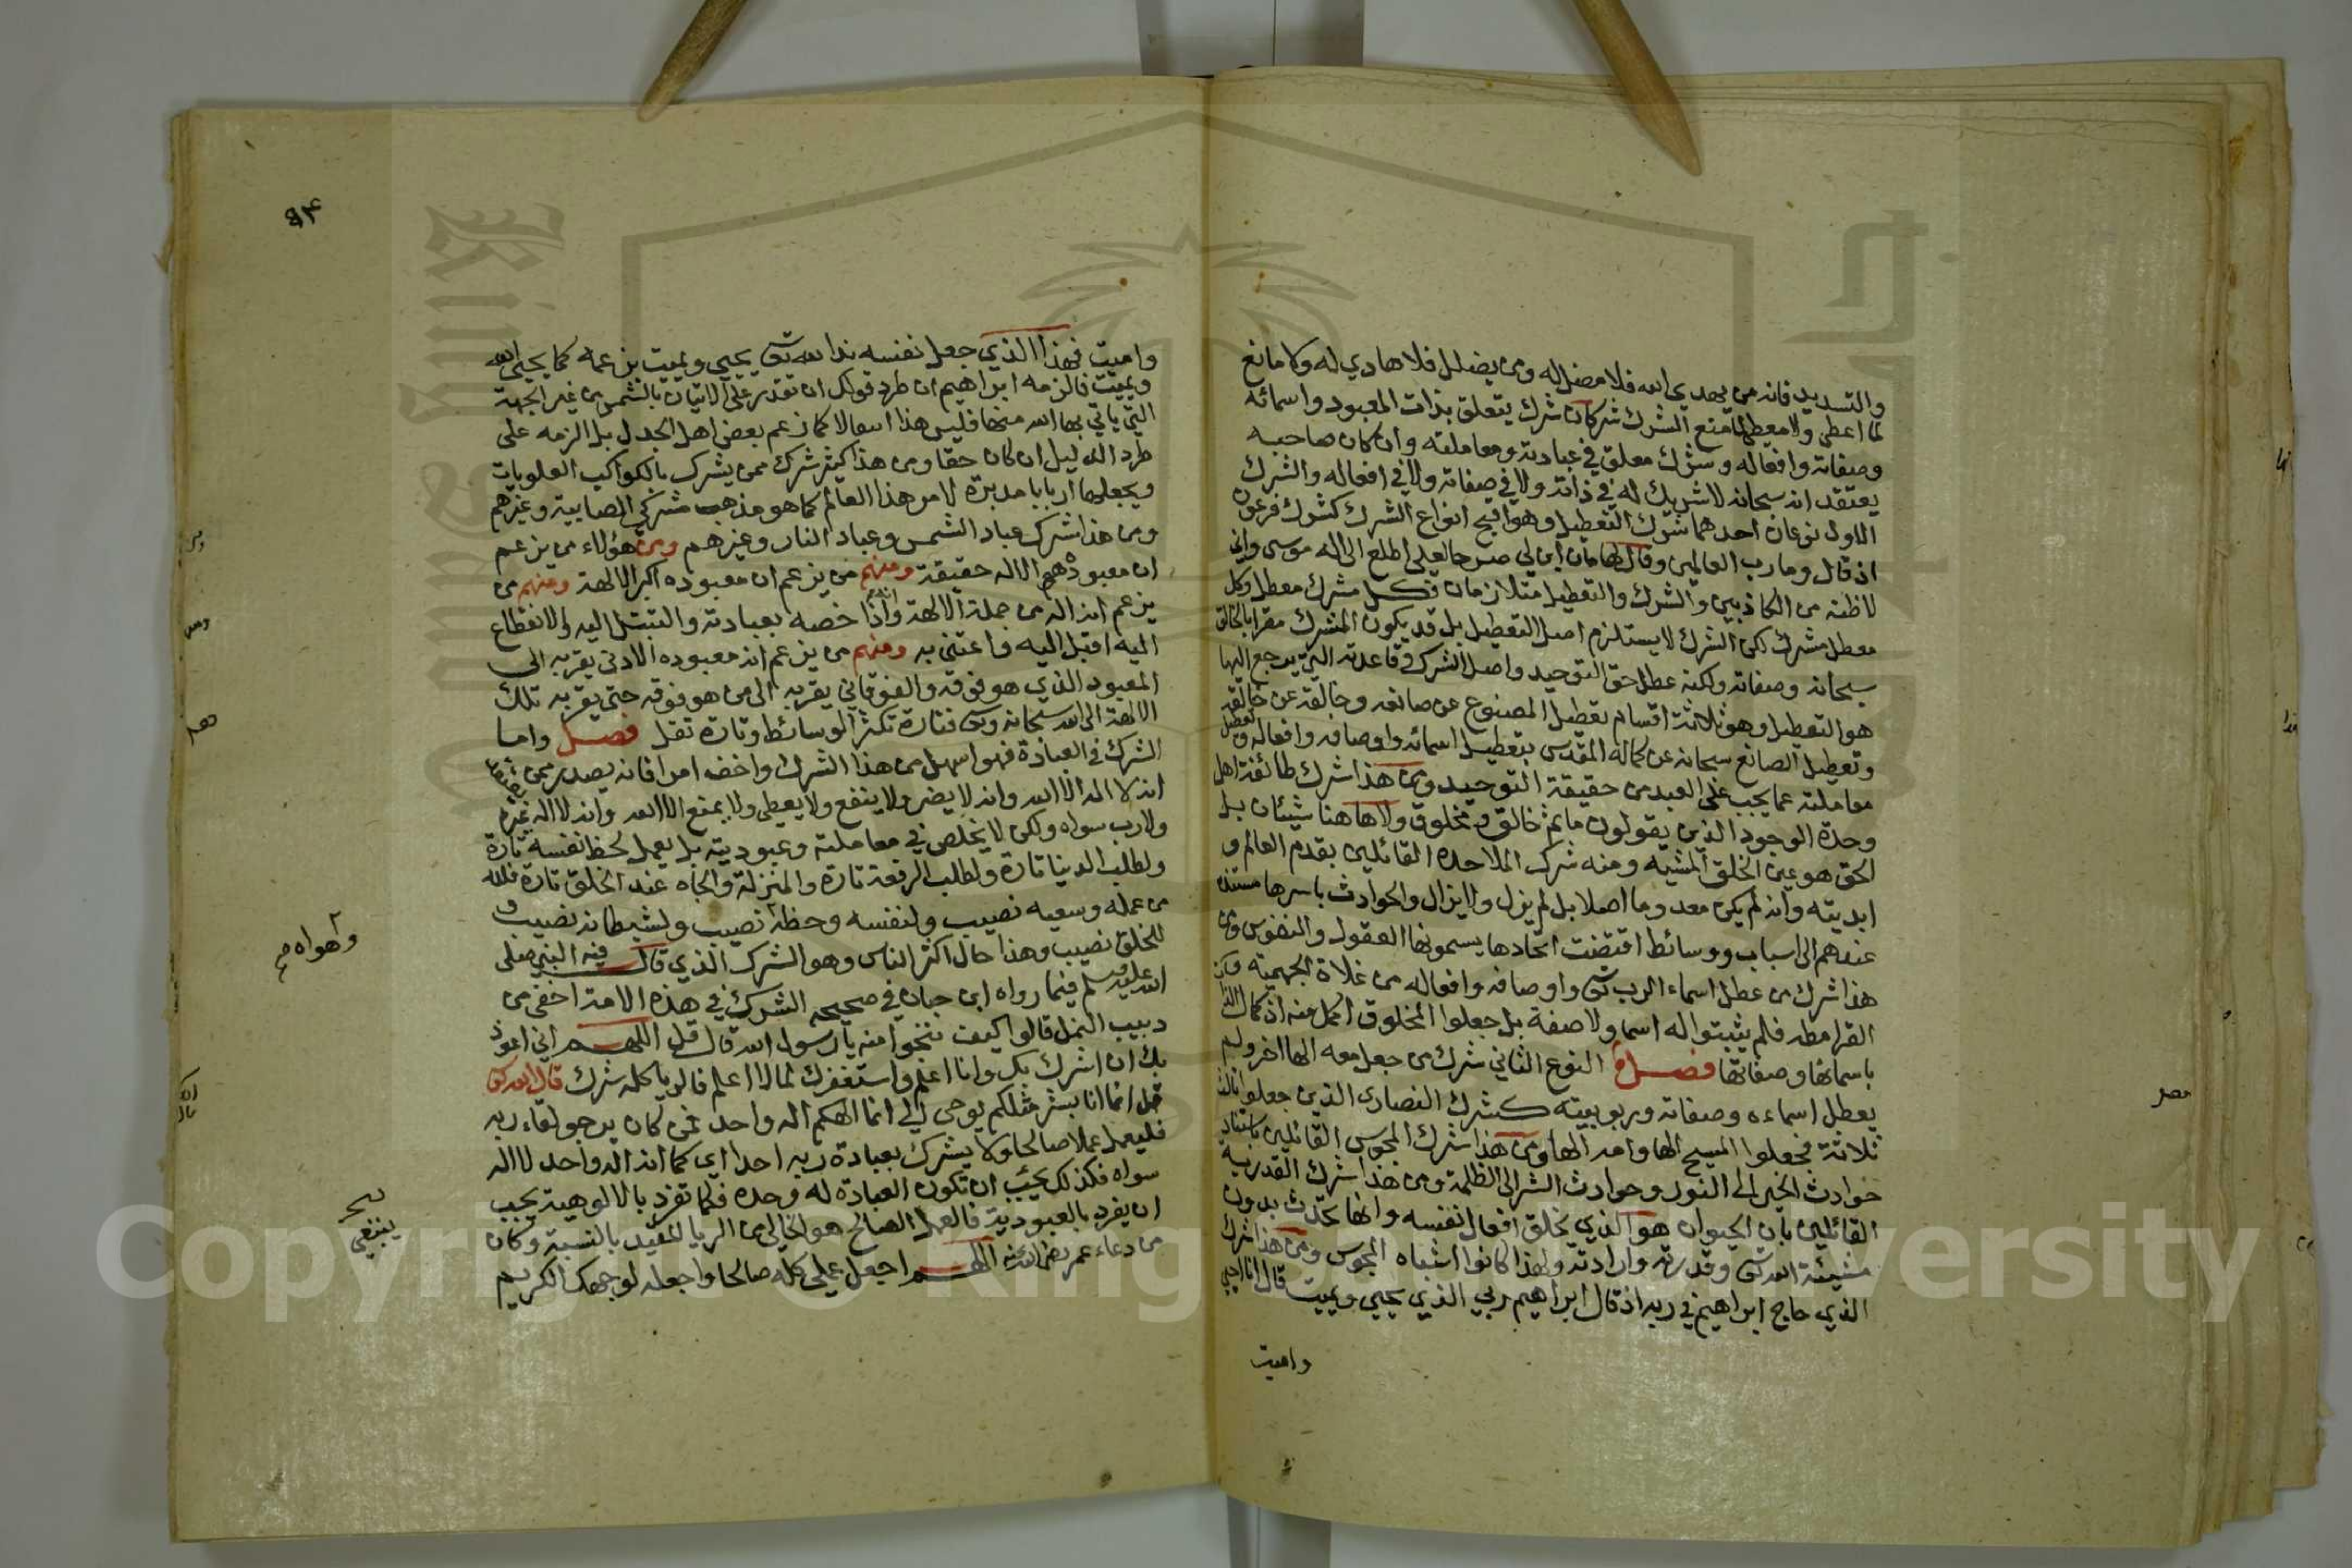 والتسديد فانه من يهدي الله فلا مضل له ومن يضلل فلا هادي له ولا مانع
لما اعطى ولا معطي لما منع الشرك شركان شرك يتعلق بذات المعبود واسمائه
وصفاته وافعاله وشرك معلق في عبادته ومعاملته وان كان صاحبه
يعتقد انه سبحانه لا شريك له في ذاته ولا في صفاته ولا في افعاله والشرك
الاول نوعان احدهما شرك التعطيل وهو اقبح انواع الشرك كشرك فرعون
اذ قال وما رب العالمين وقال لهامان ابن لي صرحا لعلي اطلع الى اله موسى واني
لاظنه من الكاذبين والشرك والتعطيل متلازمان فكل مشرك معطل وكل
معطل مشرك لكن الشرك لا يستلزم اصل التعطيل بل قد يكون المشرك مقرا بالخالق
سبحانه وصفاته ولكنه عطل حق التوحيد واصل الشرك وقاعدته التي يرجع اليها
هو التعطيل وهو ثلاثة اقسام تعطيل المصنوع عن صانعه وخالقه عن خالقه
وتعطيل الصانع سبحانه عن كماله المقدس بتعطيل اسمائه واوصافه وافعاله وتعطيل
معاملته عما يجب على العبد من حقيقة التوحيد ومن هذا شرك طائفة اهل
وحدة الوجود الذين يقولون ما ثم خالق ومخلوق ولا هاهنا شيئان بل
الحق هو عين الخلق المشبه ومنه شرك الملاحدة القائلين بقدم العالم و
ابديته وانه لم يكن معدوما اصلا بل لم يزل ولا يزال والحوادث باسرها مستندة
عندهم الى اسباب ووسائط اقتضت ايجادها يسمونها العقول والنفوس ومن
هذا شرك من عطل اسماء الرب تعالى واوصافه وافعاله من غلاة الجهمية و
القرامطه فلم يثبتوا له اسما ولا صفة بل جعلوا المخلوق اكمل منه اذ كمال الذات
باسمائها وصفاتها فصل النوع الثاني شرك من جعل معه الها اخر ولم
يعطل اسماءه وصفاته وربوبيته كشرك النصارى الذين جعلوا ثالث
ثلاثة فجعلوا المسيح الها وامه الها ومن هذا شرك المجوس القائلين باستناد
حوادث الخير الى النور وحوادث الشر الى الظلمة ومن هذا شرك القدرية
القائلين بان الحيوان هو الذي يخلق افعال نفسه وانها تحدث بدون
مشيئة الله تعالى وقدرته وارادته ولهذا كانوا اشباه المجوس ومن هذا شرك
الذي حاج ابراهيم في ربه اذ قال ابراهيم ربي الذي يحيي ويميت قال انا احيي
واميت
٩٤
واميت فهذا الذي جعل نفسه ندا لله تعالى يحيي ويميت بزعمه كما يحيي الله
ويميت فالزمه ابراهيم ان طرد قولك ان تقدر على الاتيان بالشمس من غير الجهة
التي ياتي بها الله منها فليس هذا انتقالا كما زعم بعض اهل الجدل بل الزمه على
طرد الدليل ان كان حقا ومن هذا كثير شرك ممن يشرك بالكواكب العلويات
ويجعلها اربابا مدبرة لامر هذا العالم كما هو مذهب مشركي الصابية وغيرهم
ومن هذا شرك عباد الشمس وعباد النار وغيرهم ومن هؤلاء من يزعم
ان معبودهم هو الاله حقيقة ومنهم من يزعم ان معبوده اكبر الالهة ومنهم من
يزعم انه اله من جملة الالهة وانه اذا خصه بعبادته والتبتل اليه والانقطاع
اليه اقبل اليه واعتنى به ومنهم من يزعم انه معبوده الادنى يقربه الى
المعبود الذي هو فوقه والفوقاني يقربه الى من هو فوقه حتى يقربه تلك
الالهة الى الله سبحانه وتعالى فتارة تكثر الوسائط وتارة تقل فصل واما
الشرك في العبادة فهو اسهل من هذا الشرك واخف امرا فانه يصدر ممن يعتقد
انه لا اله الا الله وانه لا يضر ولا ينفع ولا يعطي ولا يمنع الا الله وانه لا اله غيره
ولا رب سواه ولكن لا يخلص في معاملته وعبوديته بل يعمل لحظ نفسه تارة
ولطلب الدنيا تارة ولطلب الرفعة تارة والمنزلة والجاه عند الخلق تارة فلله
من عمله وسعيه نصيب ولنفسه وحظه نصيب ولشيطانه نصيب و
وهواه صح
للخلق نصيب وهذا حال اكثر الناس وهو الشرك الذي قال فيه النبي صلى
الله عليه وسلم فيما رواه ابن حبان في صحيحه الشرك في هذه الامة اخفى من
دبيب النمل قالوا كيف ننجوا منه يا رسول الله قال قل اللهم اني اعوذ
بك ان اشرك بك وانا اعلم واستغفرك لما لا اعلم فالريا كله شرك قال الله تعالى
قل انما انا بشر مثلكم يوحى الي انما الهكم اله واحد فمن كان يرجو لقاء ربه
فليعمل عملا صالحا ولا يشرك بعبادة ربه احدا اي كما انه اله واحد لا اله
سواه فكذلك يجب ان تكون العبادة له وحده فكما تفرد بالالوهية يجب
ينبغي
ان يفرد بالعبودية فالعمل الصالح هو الخالي من الريا المقيد بالنسبة وكان
من دعاء عمر رضي الله عنه اللهم اجعل عملي كله صالحا واجعله لوجهك الكريم
Copyright © King Saud University